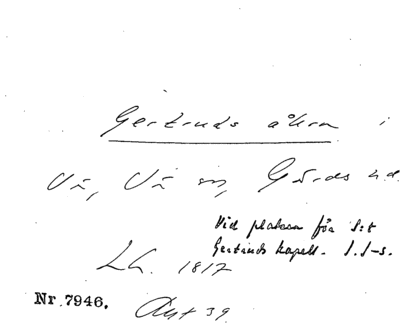 Gertruds åkern i
Vä, Vä sn, Gärds hd.
Vid platsen för S:t
Gertruds kapell. I.I-s.
LA. 1817
Nr 7946. Akt 39